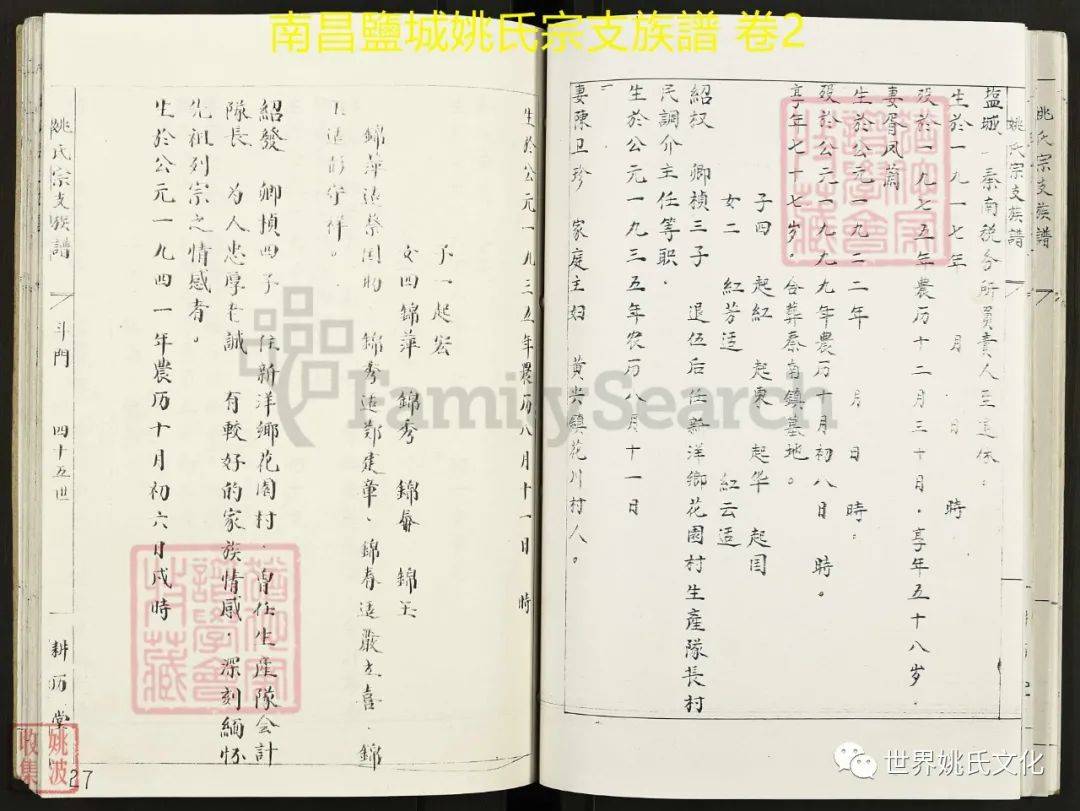 南昌鹽城姚氏宗支族譜 卷2
姚氏宗支族譜
姚氏宗支族譜
塩城 秦南税务所負責人至退休.
生於一九一七年 月 日 時
殁於一九七五年農历十二月三十日.享年五十八岁.
妻胥凤蘭
生於公元一九二二年 月 日 時.
殁於公元一九九九年農历十月初八日 時。
享年七十七岁.合葬秦南鎮墓地。
子四 起紅 起東 起华 起国
女二 紅芳适 紅云适
紹权 卿楨三子 退伍后任新洋鄉花園村生産隊長村
民調介主任等职.
生於公元一九三五年农历八月十一日
妻陳卫珍 家庭主妇 黄尖鎮花川村人。
生於公元一九三五年農历八月十一日 時
子一起宏
女四錦萍 錦秀 錦春 錦玉
錦萍适蔡国 錦秀适鄭建章.錦春适嚴 喜.錦
玉适彭守祥。
紹發 卿楨四子 住新洋鄉花園村.曾任生産隊会計
隊長 为人忠厚 誠 有較好的家族情感.深刻緬怀
先祖列宗之情感者。
生於公元一九四一年農历十月初六日戍時
姚氏宗支族譜 斗門 四十五世 耕历堂
27
姚波
收集
FamilySearch
世界姚氏文化